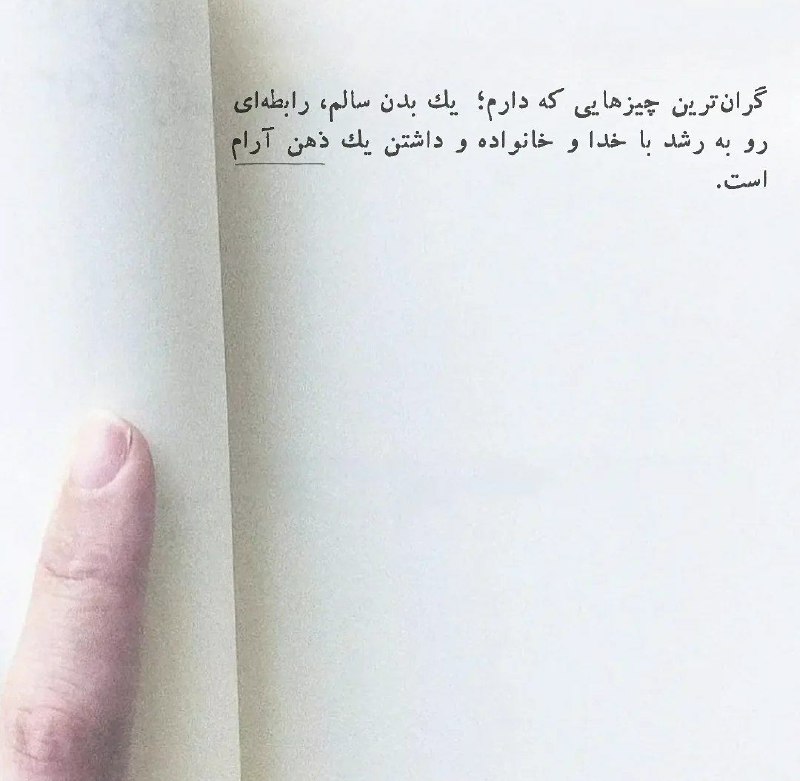 گران‌ترین چیزهایی که دارم؛ یك بدن سالم، رابطه‌ای
رو به رشد با خدا و خانواده و داشتن یك ذهن آرام
است.